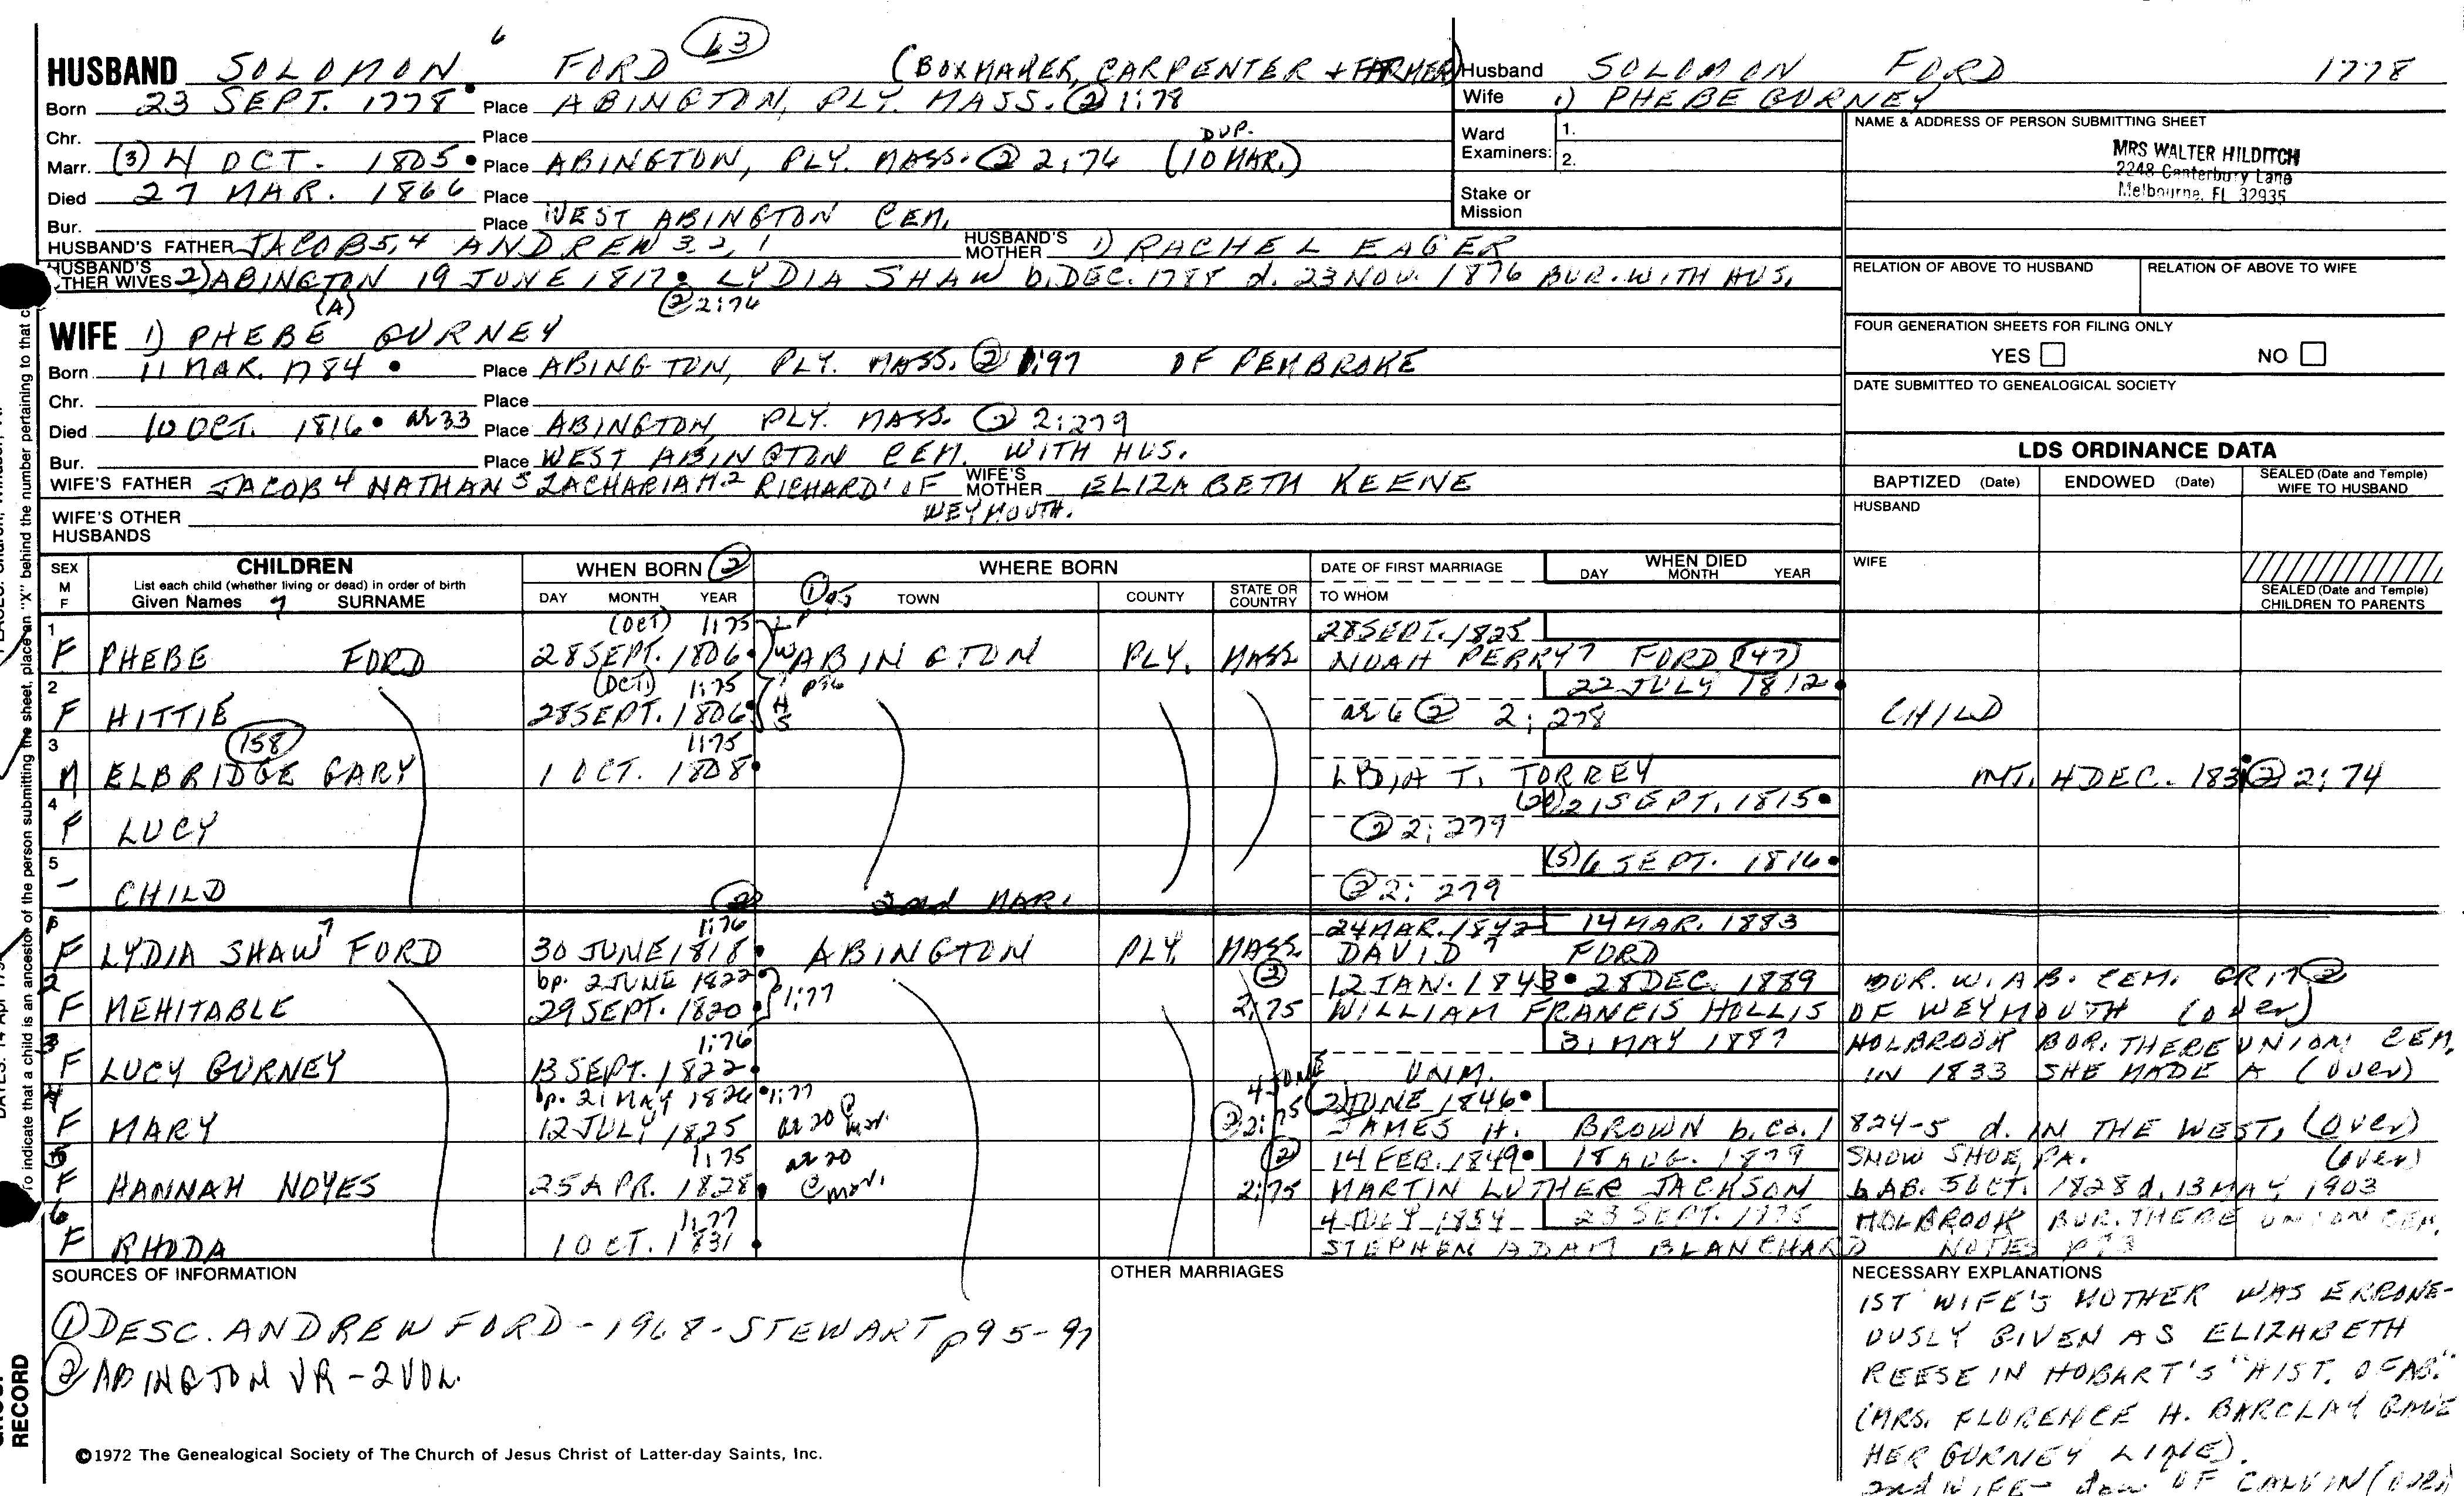 HUSBAND SOLOMON 6 FORD 63 (BOXMAKER, CARPENTER + FARMER)
Born 23 SEPT. 1778 Place ABINGTON, PLY. MASS. ② 1:78
Chr. Place DUP.
Marr. (3) 4 OCT. 1805 Place ABINGTON, PLY. MASS. ② 2:74 (10 MAR.)
Died 27 MAR. 1866 Place
Bur. Place WEST ABINGTON CEM.
HUSBAND'S FATHER JACOB 5,4 ANDREW 3 2, 1 HUSBAND'S MOTHER 1) RACHEL EAGER
HUSBAND'S OTHER WIVES 2) ABINGTON 19 JUNE 1817 LYDIA SHAW b. DEC. 1788 d. 23 NOV. 1876 BUR. WITH HUS.
(A) ② 2:74
WIFE 1) PHEBE GURNEY
Born 11 MAR. 1784 Place ABINGTON, PLY. MASS. ② 1:97 OF PEMBROKE
Chr. Place
Died 10 OCT. 1816 ae 33 Place ABINGTON, PLY. MASS. ② 2:279
Bur. Place WEST ABINGTON CEM. WITH HUS.
WIFE'S FATHER JACOB 4 NATHAN 3 ZACHARIAH 2 RICHARD 1 OF WEYMOUTH. WIFE'S MOTHER ELIZABETH KEENE
WIFE'S OTHER HUSBANDS
Husband SOLOMON FORD 1778
Wife 1) PHEBE GURNEY
Ward Examiners: 1.
2.
Stake or Mission
NAME & ADDRESS OF PERSON SUBMITTING SHEET
MRS WALTER HILDITCH
2248 Canterbury Lane
Melbourne, FL 32935
RELATION OF ABOVE TO HUSBAND RELATION OF ABOVE TO WIFE
FOUR GENERATION SHEETS FOR FILING ONLY
YES NO
DATE SUBMITTED TO GENEALOGICAL SOCIETY
LDS ORDINANCE DATA
BAPTIZED (Date) ENDOWED (Date) SEALED (Date and Temple) WIFE TO HUSBAND
HUSBAND
WIFE
SEALED (Date and Temple) CHILDREN TO PARENTS
SEX M F CHILDREN WHEN BORN ② WHERE BORN DATE OF FIRST MARRIAGE WHEN DIED
List each child (whether living or dead) in order of birth
Given Names 7 SURNAME DAY MONTH YEAR ① 95 TOWN COUNTY STATE OR COUNTRY TO WHOM DAY MONTH YEAR
1 (OCT) 1:75 28 SEPT. 1825
F PHEBE FORD 28 SEPT. 1806 ABINGTON PLY. MASS NOAH PERRY 7 FORD (47)
2 (OCT) 1:75 p96 22 JULY 1812
F HITTIE 28 SEPT. 1806 ae 6 ② 2:278 CHILD
3 158 1:75
M ELBRIDGE GARY 1 OCT. 1808 LYDIA T. TORREY MT. 4 DEC. 183 ② 2:74
4 (20) 21 SEPT. 1815
F LUCY ② 2:279
5 (5) 6 SEPT. 1816
- CHILD ② 2:279
② 2nd MAR.
1:76 24 MAR. 1842 14 MAR. 1883
F LYDIA SHAW 7 FORD 30 JUNE 1818 ABINGTON PLY. MASS. DAVID 7 FORD
2 bp. 2 JUNE 1822 ② 12 JAN. 1843 28 DEC. 1889 BUR. W. AB. CEM. GR17 ②
F MEHITABLE 29 SEPT. 1820 1:77 2:75 WILLIAM FRANCIS HOLLIS OF WEYMOUTH (over)
3 1:76 31 MAY 1887 HOLBROOK BUR. THERE UNION CEM.
F LUCY GURNEY 13 SEPT. 1822 UNM. IN 1833 SHE MADE A (over)
4 bp. 21 MAY 1826 1:77 4 JUNE (2) JUNE 1846
F MARY 12 JULY 1825 ae 20 @ mar. ② 2:75 JAMES H. BROWN b. ca. 1824-5 d. IN THE WEST, (over)
5 1:75 ae 20 ② 14 FEB. 1849 18 AUG. 1879 SNOW SHOE, PA. (over)
F HANNAH NOYES 25 APR. 1828 @ mar. 2:75 MARTIN LUTHER JACKSON b AB. 5 OCT. 1828 d. 13 MAY 1903
6 1:77 4 JULY 1854 23 SEPT. HOLBROOK BUR. THERE UNION CEM.
F RHODA 1 OCT. 1831 STEPHEN ADAM BLANCHARD NOTES p73
SOURCES OF INFORMATION
① DESC. ANDREW FORD - 1968 - STEWART p95-97
② ABINGTON VR - 2 VOL.
OTHER MARRIAGES
NECESSARY EXPLANATIONS
1ST WIFE'S MOTHER WAS ERRONE-
OUSLY GIVEN AS ELIZABETH
REESE IN HOBART'S "HIST. OF AB."
(MRS. FLORENCE H. BARCLAY GAVE
HER GURNEY LINE).
2nd WIFE - dau. OF CALVIN (over)
©1972 The Genealogical Society of The Church of Jesus Christ of Latter-day Saints, Inc.
To indicate that a child is an ancestor of the person submitting the sheet, place an "X" behind the number pertaining to that c
RECORD